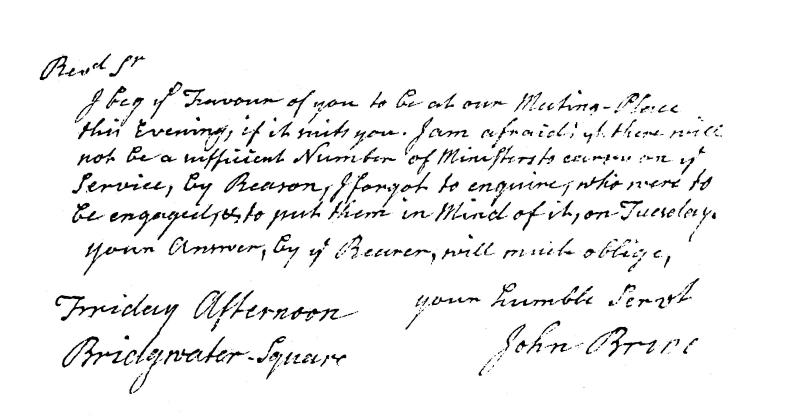 Revd Sr
I beg ye Favour of you to be at our Meeting-Place
this Evening, if it suits you. I am afraid, yt there will
not be a sufficient Number of Ministers to carry on ye
Service, by Reason, I forgot to enquire, who were to
be engaged, & to put them in Mind of it, on Tuesday.
your Answer, by ye Bearer, will much oblige,
your humble Servt
Friday Afternoon
John Brine
Bridgwater-Square